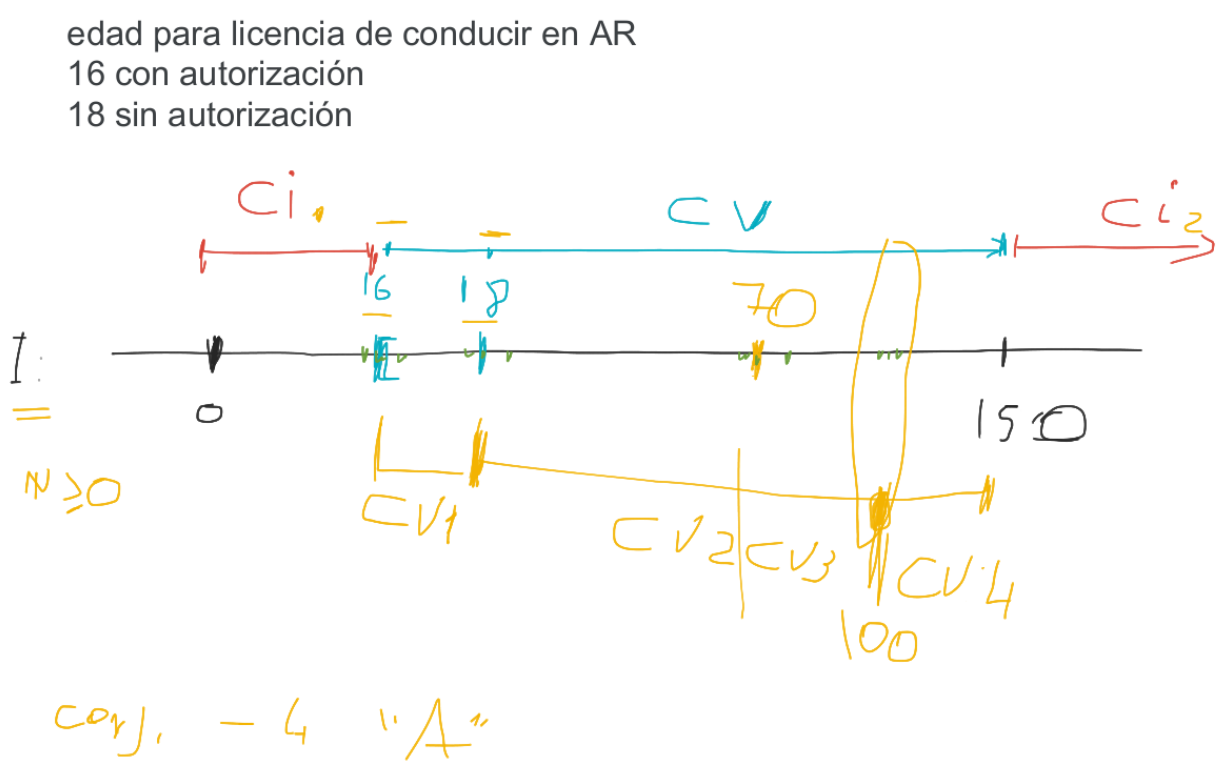 edad para licencia de conducir en AR
16 con autorización
18 sin autorización
Ci1 CV Ci2
16 18 70
I:
0 150
N ≥ 0
CV1 CV2 CV3 CV4
100
conj. - 4 "A"